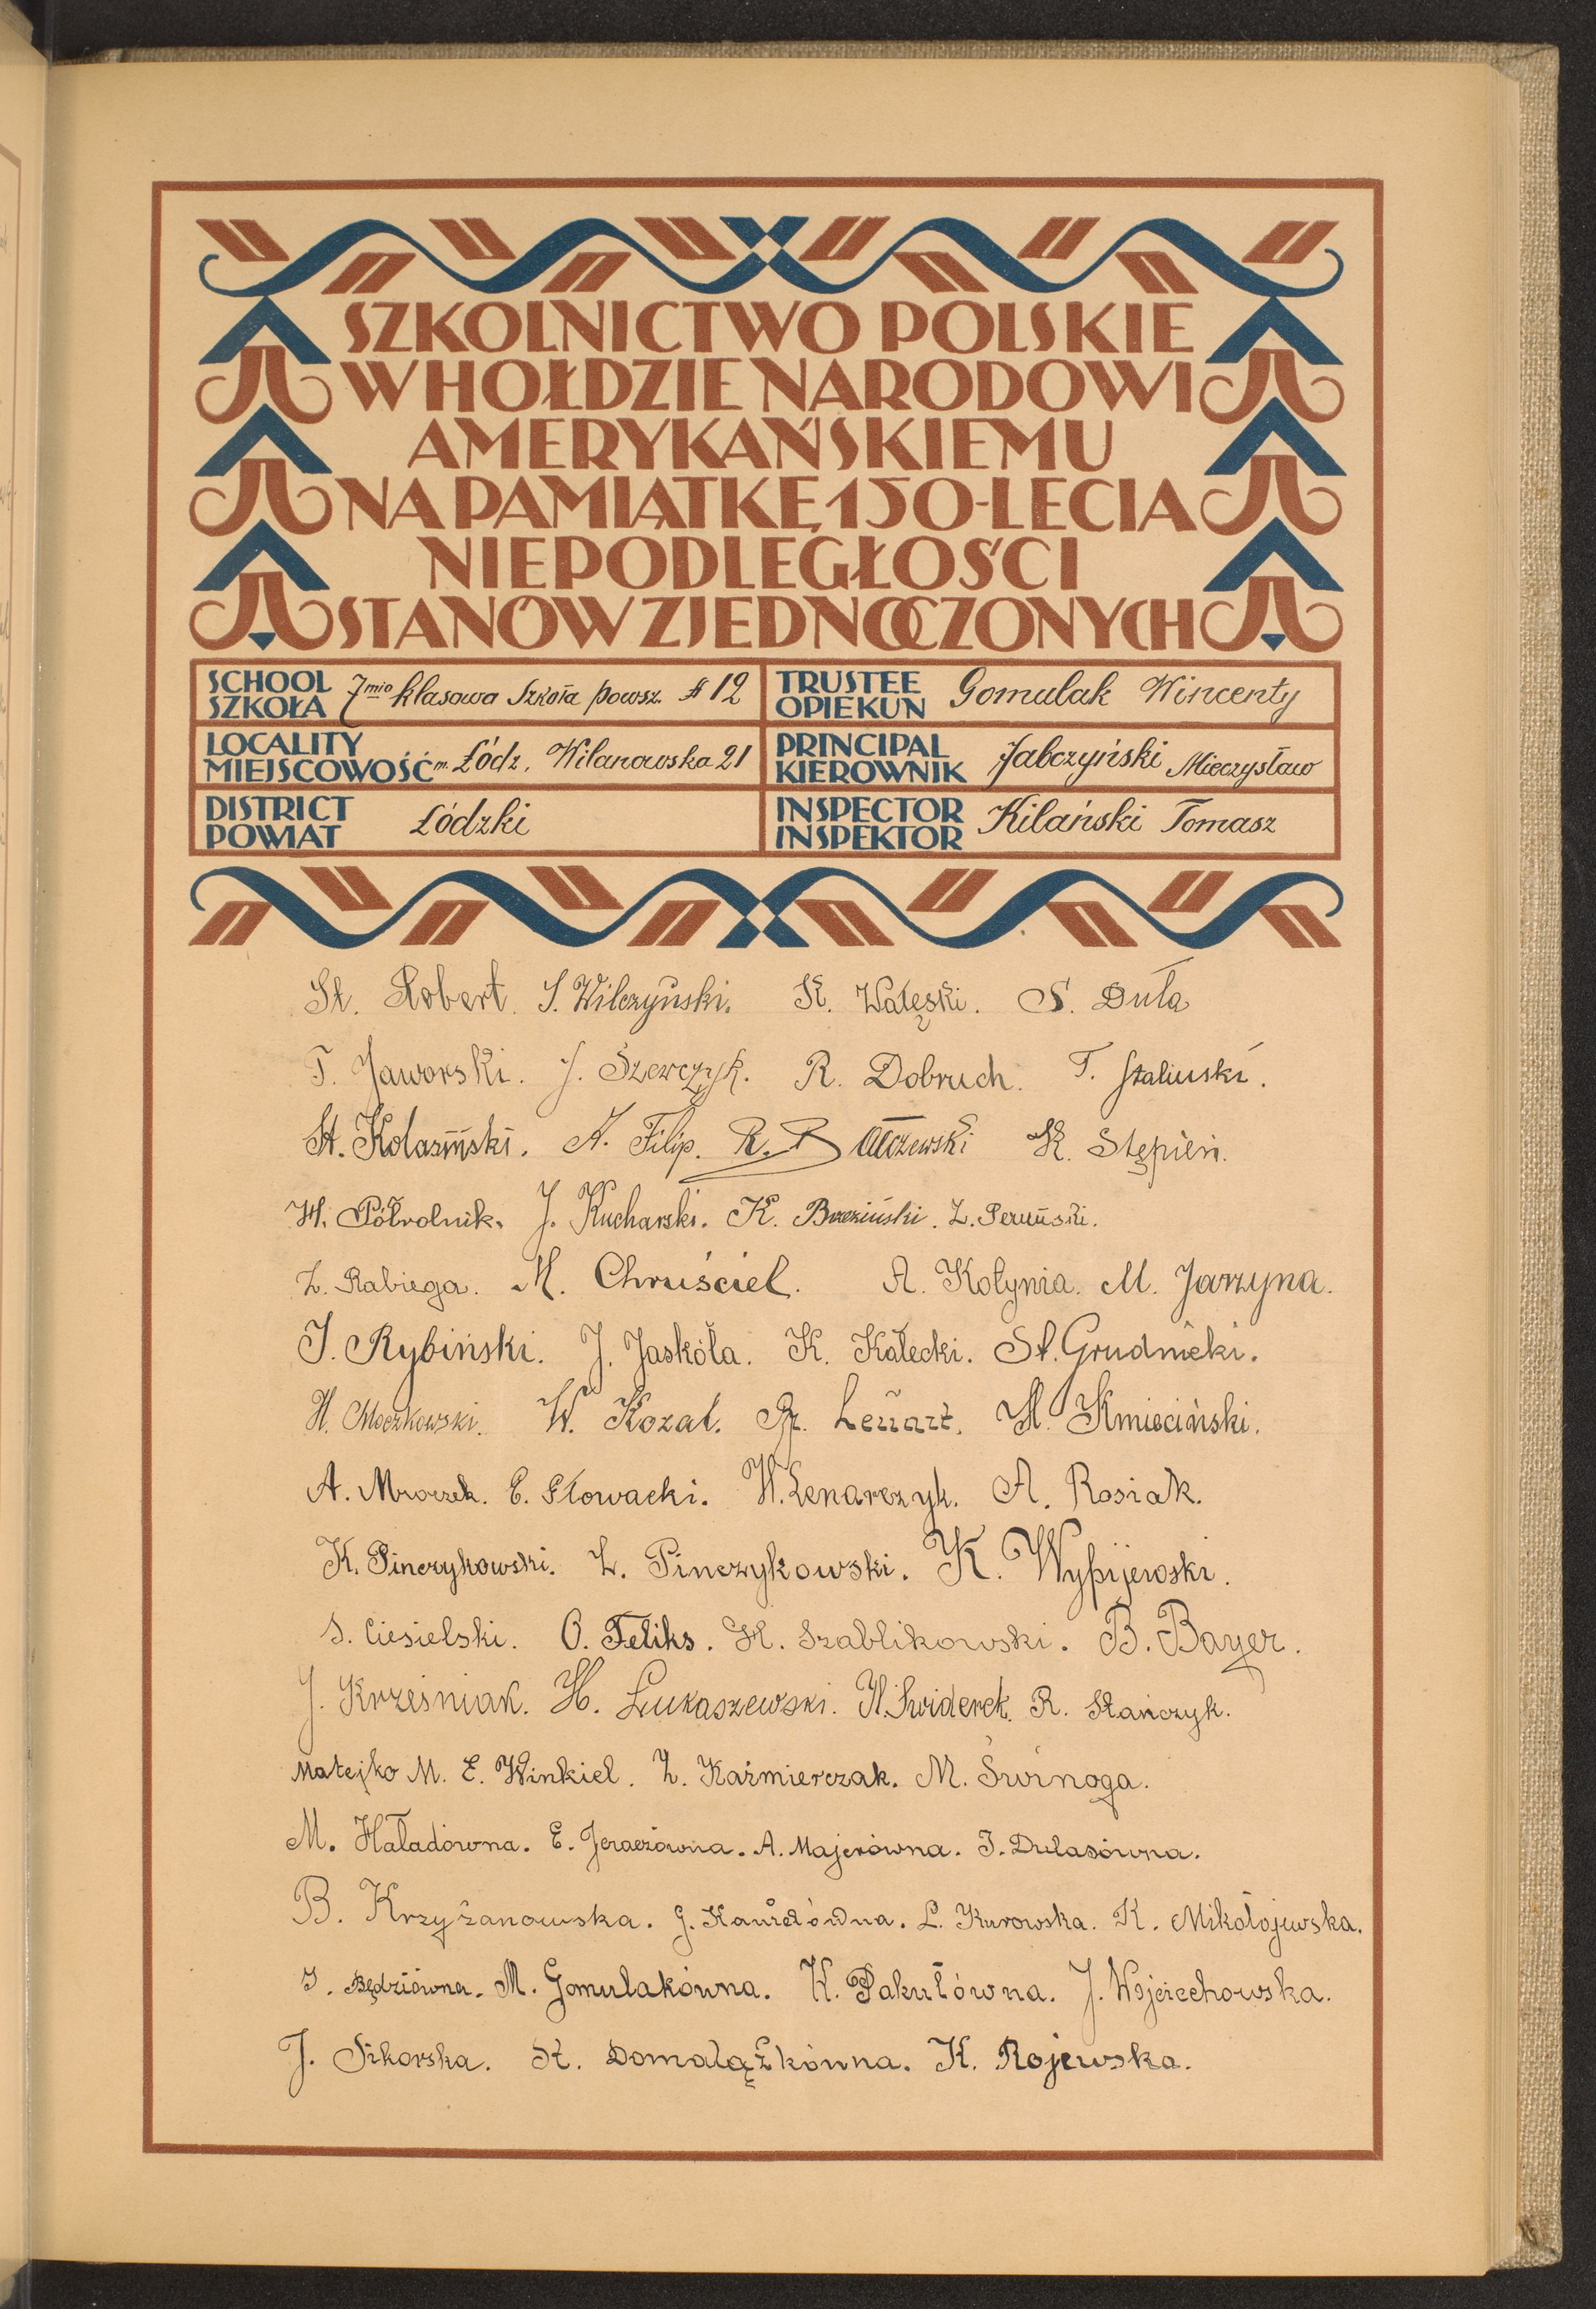 SZKOLNICTWO POLSKIE
W HOŁDZIE NARODOWI
AMERYKAŃSKIEMU
NA PAMIĄTKĘ 150-LECIA
NIEPODLEGŁOŚCI
STANÓW ZJEDNOCZONYCH
SCHOOL SZKOŁA 7mio klasowa Szkoła powsz. # 12
TRUSTEE OPIEKUN Gomulak Wincenty
LOCALITY MIEJSCOWOŚĆ m. Łódz, Wilanowska 21
PRINCIPAL KIEROWNIK Jabczyński Mieczysław
DISTRICT POWIAT Łódzki
INSPECTOR INSPEKTOR Kilański Tomasz
St. Robert. S. Wilczyński. K. Wałęski. S. Duła
T. Jaworski. J. Szewczyk. R. Dobruch. T. Staliński.
St. Kolasiński. A. Filip. R. K. Stępień.
W. Półrolnik. J. Kucharski. K. Brzeziński. Z.
Z. Rabiega. M. Chruściel. A. Kołynia. M. Jarzyna.
J. Rybiński. J. Jaskóła. K. Kałecki. St. Grudnicki.
H. Moczkowski. W. Kozal. Fr. Lenart. M. Kmieciński.
A. Mroczek. E. Słowacki. W. Lenarczyk. A. Rosiak.
K. Pinczykowski. Z. Pinczykowski. K. Wypijewski.
S. Ciesielski. O. Feliks. H. Szablikowski. B. Bayer.
J. Krześniak. H. Łukaszewski. H. Świderek. R. Stańczyk.
Matejko M. E. Winkiel. Z. Kaźmierczak. M. Świnoga.
M. Haładówna. E. Jeraczówna. A. Majerówna. J. Dulasówna.
B. Krzyżanowska. G. L. Kurowska. K. Mikołojewska.
J. Będziówna. M. Gomulakówna. K. Pakułówna. J. Wojciechowska.
J. Sikorska. St. Domalążkówna. K. Rojewska.